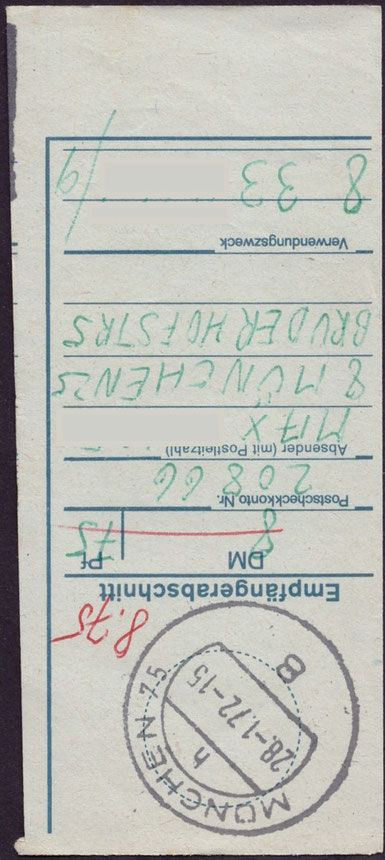 MÜNCHEN 75
h
28.-1.72-15
B
8.75
Empfängerabschnitt
DM Pf
8 75
Postscheckkonto Nr.
20866
Absender (mit Postleitzahl)
MAX
8 MÜNCHEN 25
BRUDERHOFSTR 5
Verwendungszweck
8 33